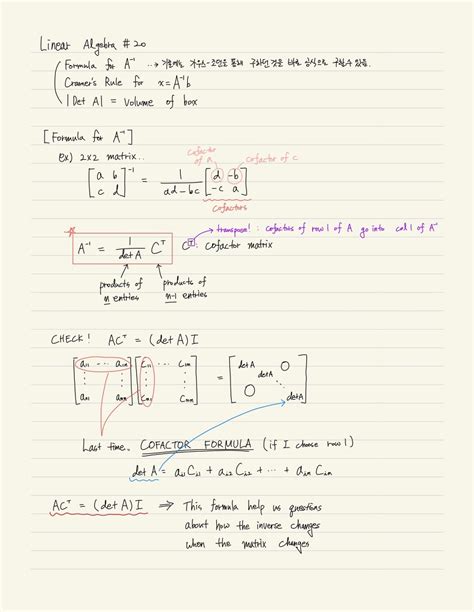 Linear Algebra #20
Formula for A⁻¹ ..→ 기존에는 가우스-조던을 통해 구하던 것을 바로 공식으로 구할 수 있음.
Cramer's Rule for x = A⁻¹b
|Det A| = volume of box
[Formula for A⁻¹]
ex) 2x2 matrix..
cofactor of a
cofactor of c
[a b
c d]⁻¹ = 1/(ad-bc) [d -b
-c a]
cofactors
* A⁻¹ = 1/(det A) Cᵀ
C: cofactor matrix
→ transpose! : cofactors of row 1 of A go into col 1 of A⁻¹
products of n entries
products of n-1 entries
CHECK! ACᵀ = (det A) I
[a₁₁ ··· a₁ₙ
⋮ ⋮
aₙ₁ aₙₙ] [C₁₁ ··· Cₙ₁
⋮ ⋮
C₁ₙ Cₙₙ] = [det A 0
⋱
0 det A]
Last time.. COFACTOR FORMULA (if I choose row 1)
det A = a₁₁C₁₁ + a₁₂C₁₂ + ··· + a₁ₙC₁ₙ
ACᵀ = (det A) I ⇒ This formula help us questions
about how the inverse changes
when the matrix changes